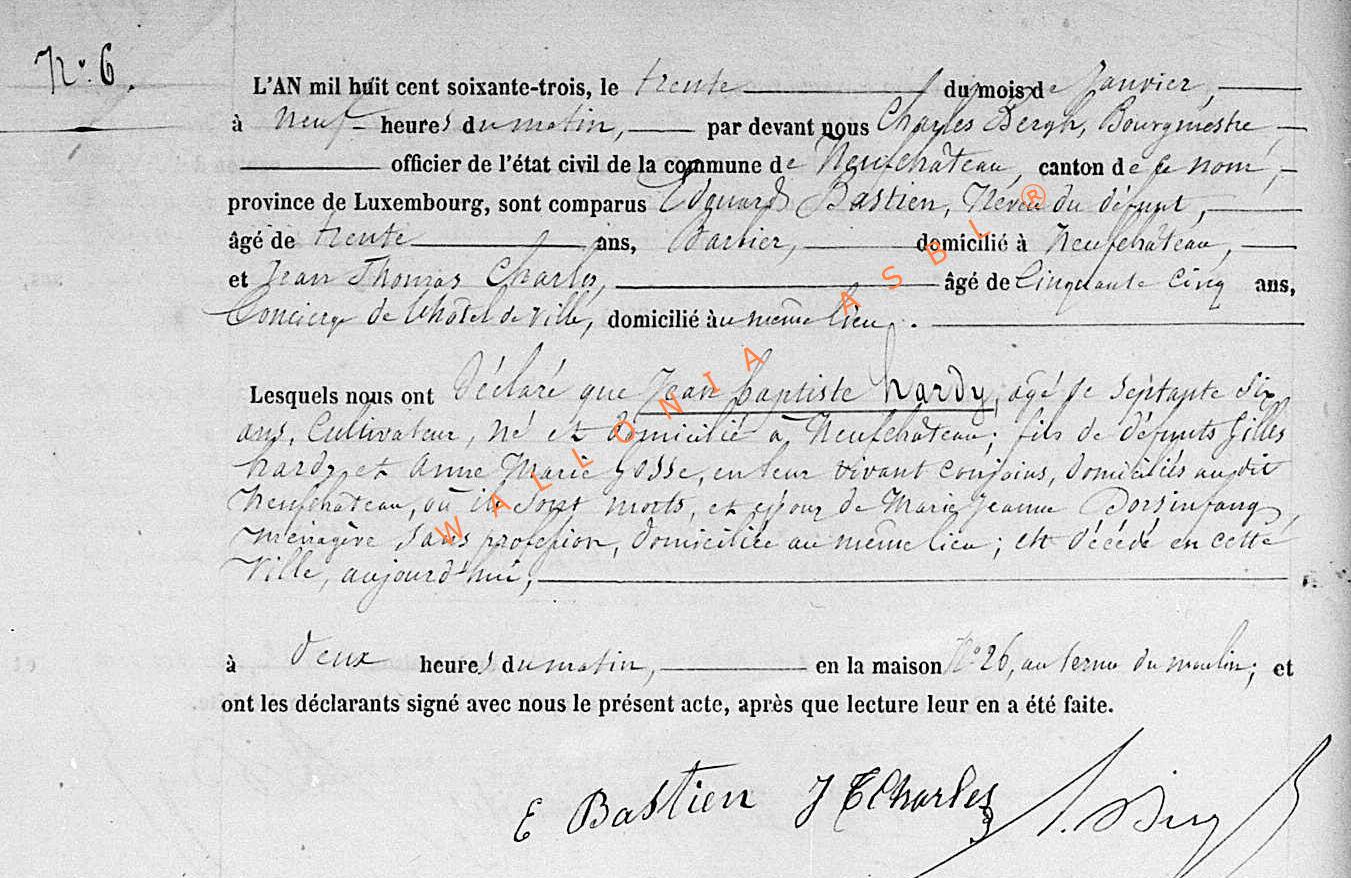 N° 6.
L'AN mil huit cent soixante-trois, le trente du mois de Janvier,
à neuf heures du matin, par devant nous Charles Bergh, Bourgmestre
officier de l'état civil de la commune de Neufchâteau, canton de ce nom,
province de Luxembourg, sont comparus Edouard Bastien, Neveu du défunt,
âgé de trente ans, Barbier, domicilié à Neufchâteau,
et Jean Thomas Charles, âgé de Cinquante Cinq ans,
Concierge de l'hôtel de ville, domicilié au même lieu.
Lesquels nous ont Déclaré que Jean baptiste hardy, âgé de Septante Six
ans, Cultivateur, né et domicilié à Neufchâteau; fils de défunts Gilles
hardy et Anne Marie Gosse, en leur vivant conjoins, domiciliés audit
Neufchâteau, où ils sont morts, et époux de Marie Jeanne
Ménagère sans profession, domiciliée au même lieu; est décédé en cette
Ville, aujourd'hui,
à deux heures du matin, en la maison N° 26, au du moulin; et
ont les déclarants signé avec nous le présent acte, après que lecture leur en a été faite.
E Bastien J T Charles
WALLONIA ASBL ®